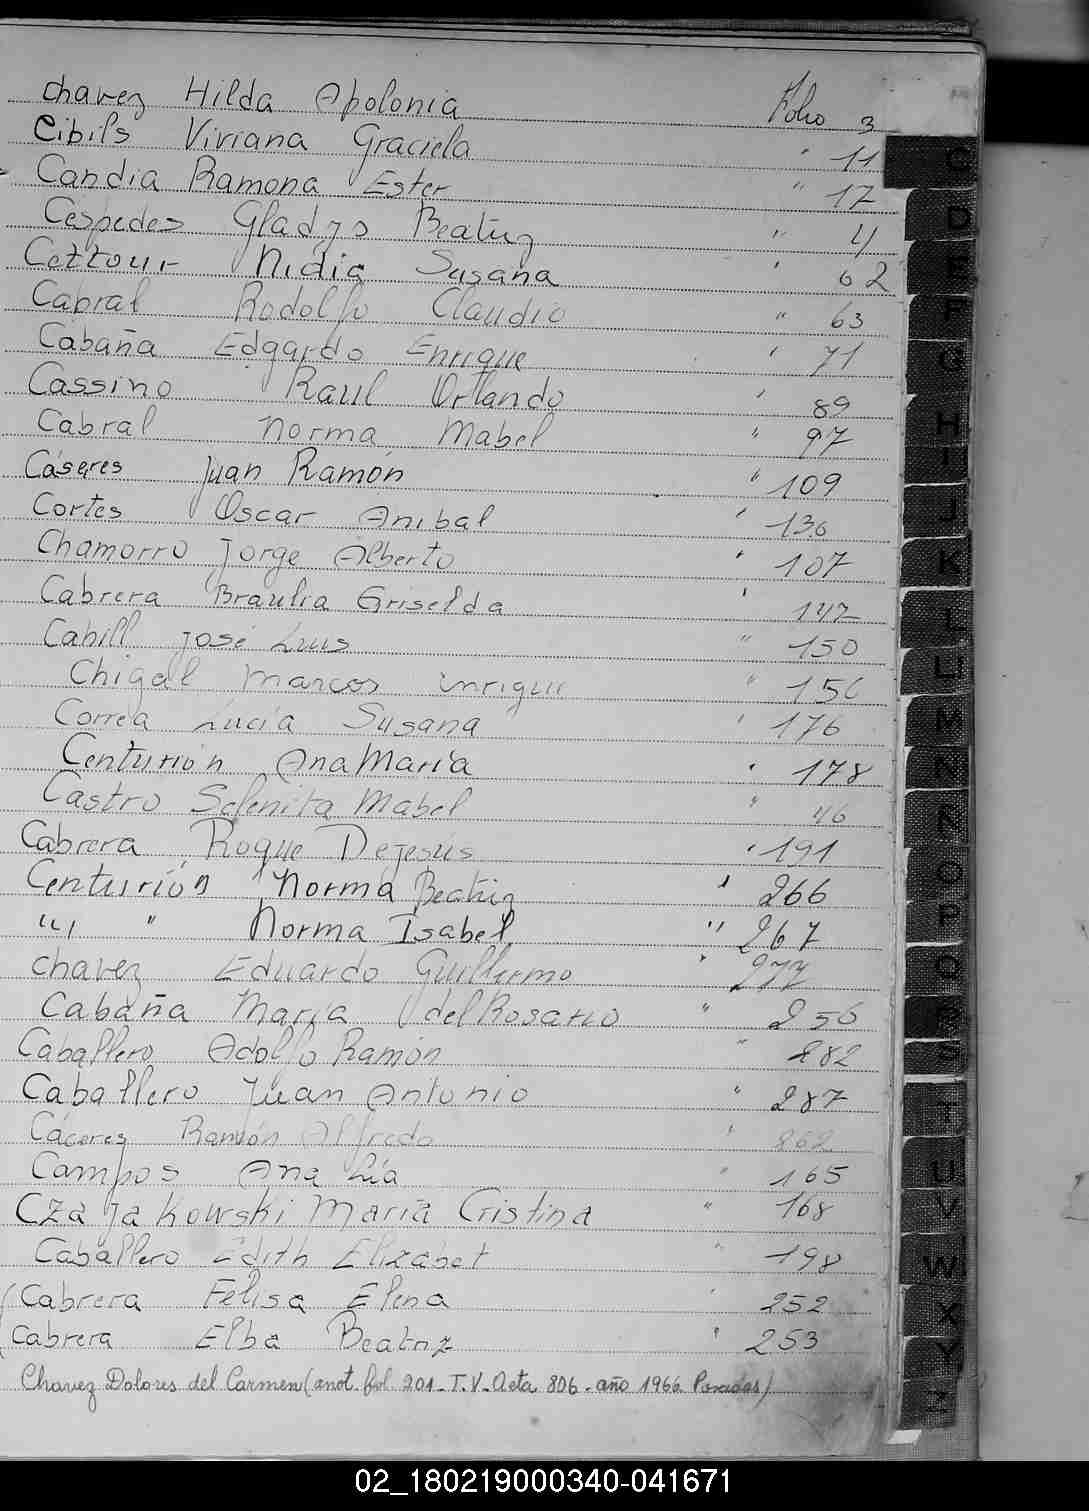 Chavez Hilda Apolonia Folio 3
Cibils Viviana Graciela " 11
Candia Ramona Ester " 17
Cespedes Gladys Beatriz " 4
Cettour Nidia Susana " 62
Cabral Rodolfo Claudio " 63
Cabaña Edgardo Enrique " 71
Cassino Raul Orlando " 89
Cabral Norma Mabel " 97
Cáseres Juan Ramón " 109
Cortes Oscar Anibal " 136
Chamorro Jorge Alberto " 107
Cabrera Braulia Griselda " 147
Cahill José Luis " 150
Chigal Marcos Enrique " 156
Correa Lucia Susana " 176
Centurión Ana Maria " 178
Castro Selenita Mabel " 46
Cabrera Roque Dejesús " 191
Centurión Norma Beatriz " 266
" " Norma Isabel " 267
Chavez Eduardo Guillermo " 277
Cabaña Maria del Rosario " 256
Caballero Adolfo Ramón " 282
Caballero Juan Antonio " 287
Cáceres Ramón Alfredo " 262
Campos Ana Lía " 165
Czajakowski Maria Cristina " 168
Caballero Edith Elizabet " 198
Cabrera Felisa Elena " 252
Cabrera Elba Beatriz " 253
Chavez Dolores del Carmen (anot. fol. 201 - T. V - Acta 806 - año 1966 Posadas)
C
D
E
F
G
H
I
J
K
L
LL
M
N
Ñ
O
P
Q
R
S
T
U
V
W
X
Y
Z
02_180219000340-041671